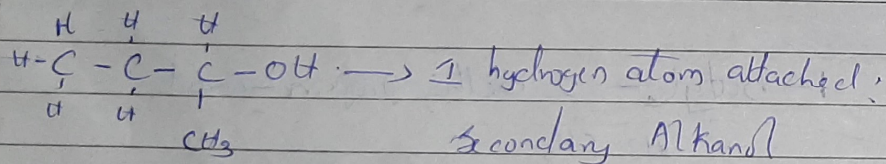 H H H
H-C - C - C - OH → 1 hydrogen atom attached:
H H
CH3 Secondary Alkanol